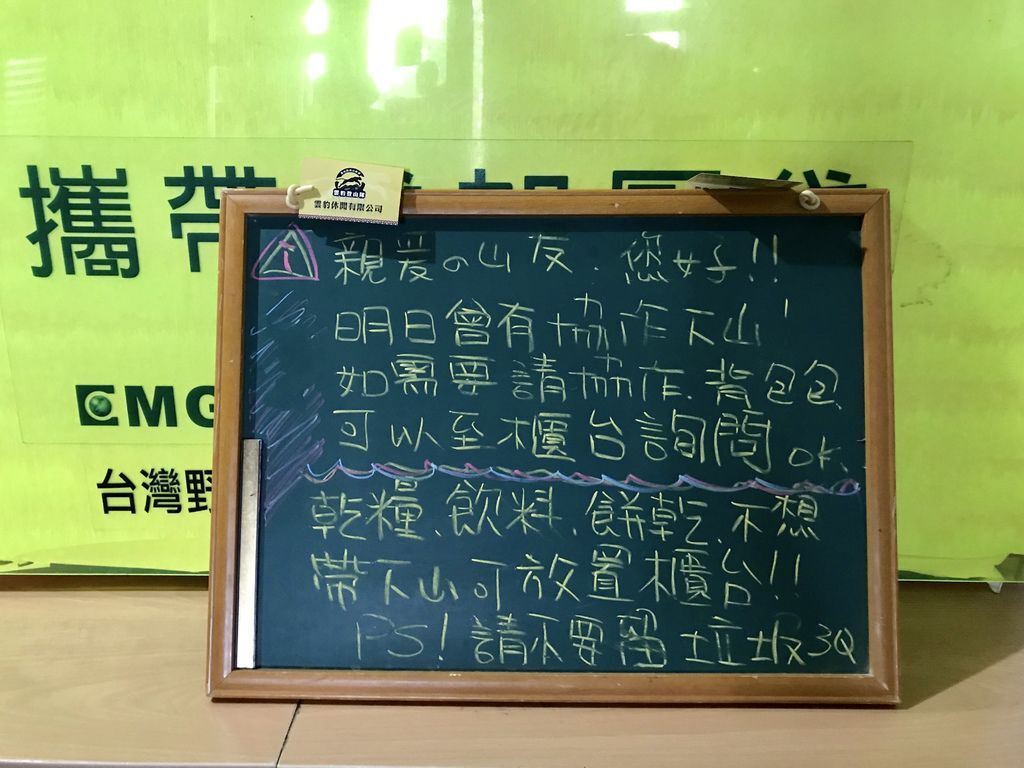 攜帶
雲豹登山隊
雲豹休閒有限公司
EMG
台灣野
親爱の山友、您好!!
明日曾有協作下山'
如需要請協作、背包包、
可以至櫃台詢問 OK.
乾糧、飲料、餅乾、不想
帶下山可放置櫃台!!
PS! 請不要留垃圾 3Q